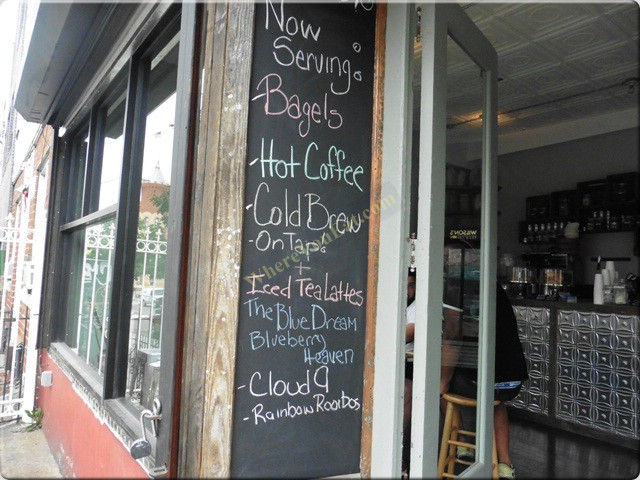 Now
Serving:
-Bagels
-Hot Coffee
-Cold Brew
-On Tap!
+
Iced Tea Lattes
The Blue Dream
Blueberry
Heaven
-Cloud 9
-Rainbow Rooibos
WILSON'S